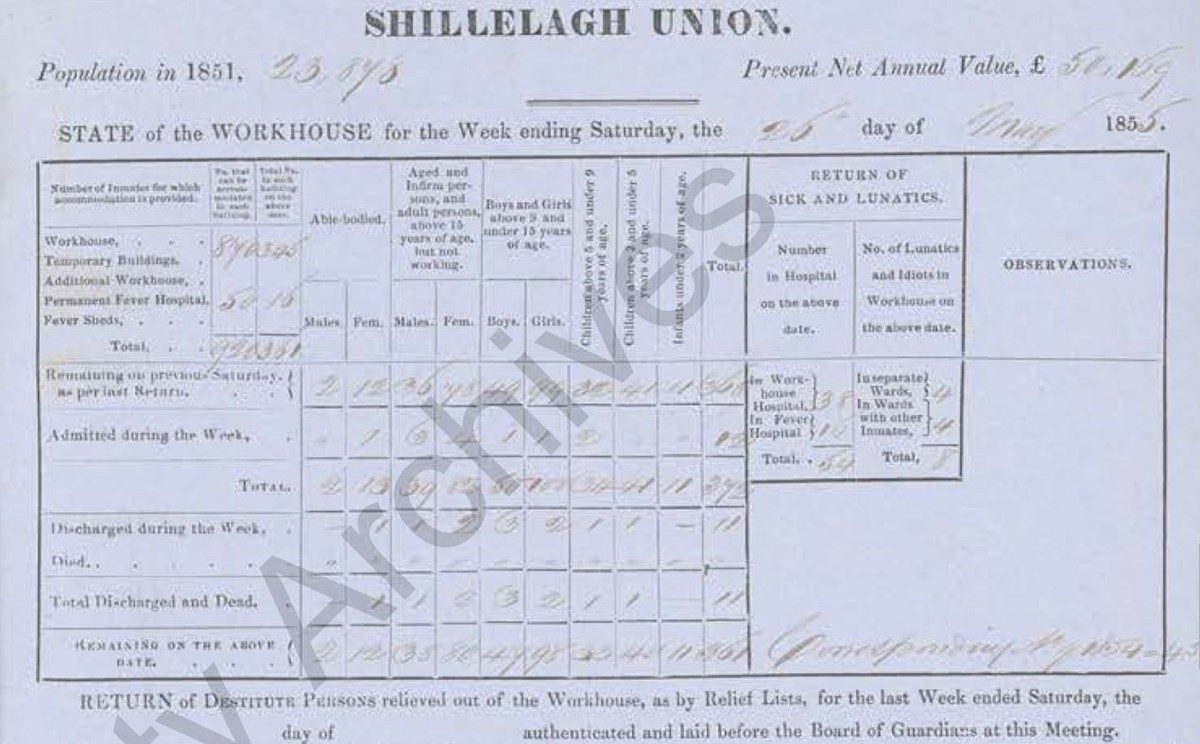 SHILLELAGH UNION.
Population in 1851, 23,878 Present Net Annual Value, £ 50,159
STATE of the WORKHOUSE for the Week ending Saturday, the 26 day of May 1855.
Number of Inmates for which accommodation is provided.
No. that can be accommodated in each building.
Total No. in each building on the above date.
Able-bodied.
Aged and Infirm persons, and adult persons, above 15 years of age, but not working.
Boys and Girls above 9 and under 15 years of age.
Children above 5 and under 9 years of age.
Children above 2 and under 5 years of age.
Infants under 2 years of age.
Total.
RETURN OF SICK AND LUNATICS.
Number in Hospital on the above date.
No. of Lunatics and Idiots in Workhouse on the above date.
OBSERVATIONS.
Workhouse, . . . 870 345
Temporary Buildings. .
Additional Workhouse, .
Permanent Fever Hospital, 50 16
Fever Sheds, . . .
Total, . . 920 361
Males. Fem. Males. Fem. Boys. Girls.
Remaining on previous Saturday, as per last Return. . . 2 12 36 11
Admitted during the Week, . 1 3 4 1
TOTAL. 2 13 39 34 41 11 372
Discharged during the Week, . 1 2 3 2 1 1 – 11
Died. . . . . .
Total Discharged and Dead, . 1 1 2 3 2 1 1 – 11
REMAINING ON THE ABOVE DATE. . . . 2 12 38 80 47 98 33 40 11 361
In Workhouse Hospital, 38
In Fever Hospital
Total, . 54
In separate Wards, 4
In Wards with other Inmates, 4
Total, 8
Corresponding
RETURN of DESTITUTE PERSONS relieved out of the Workhouse, as by Relief Lists, for the last Week ended Saturday, the
day of authenticated and laid before the Board of Guardians at this Meeting.
ty Archives